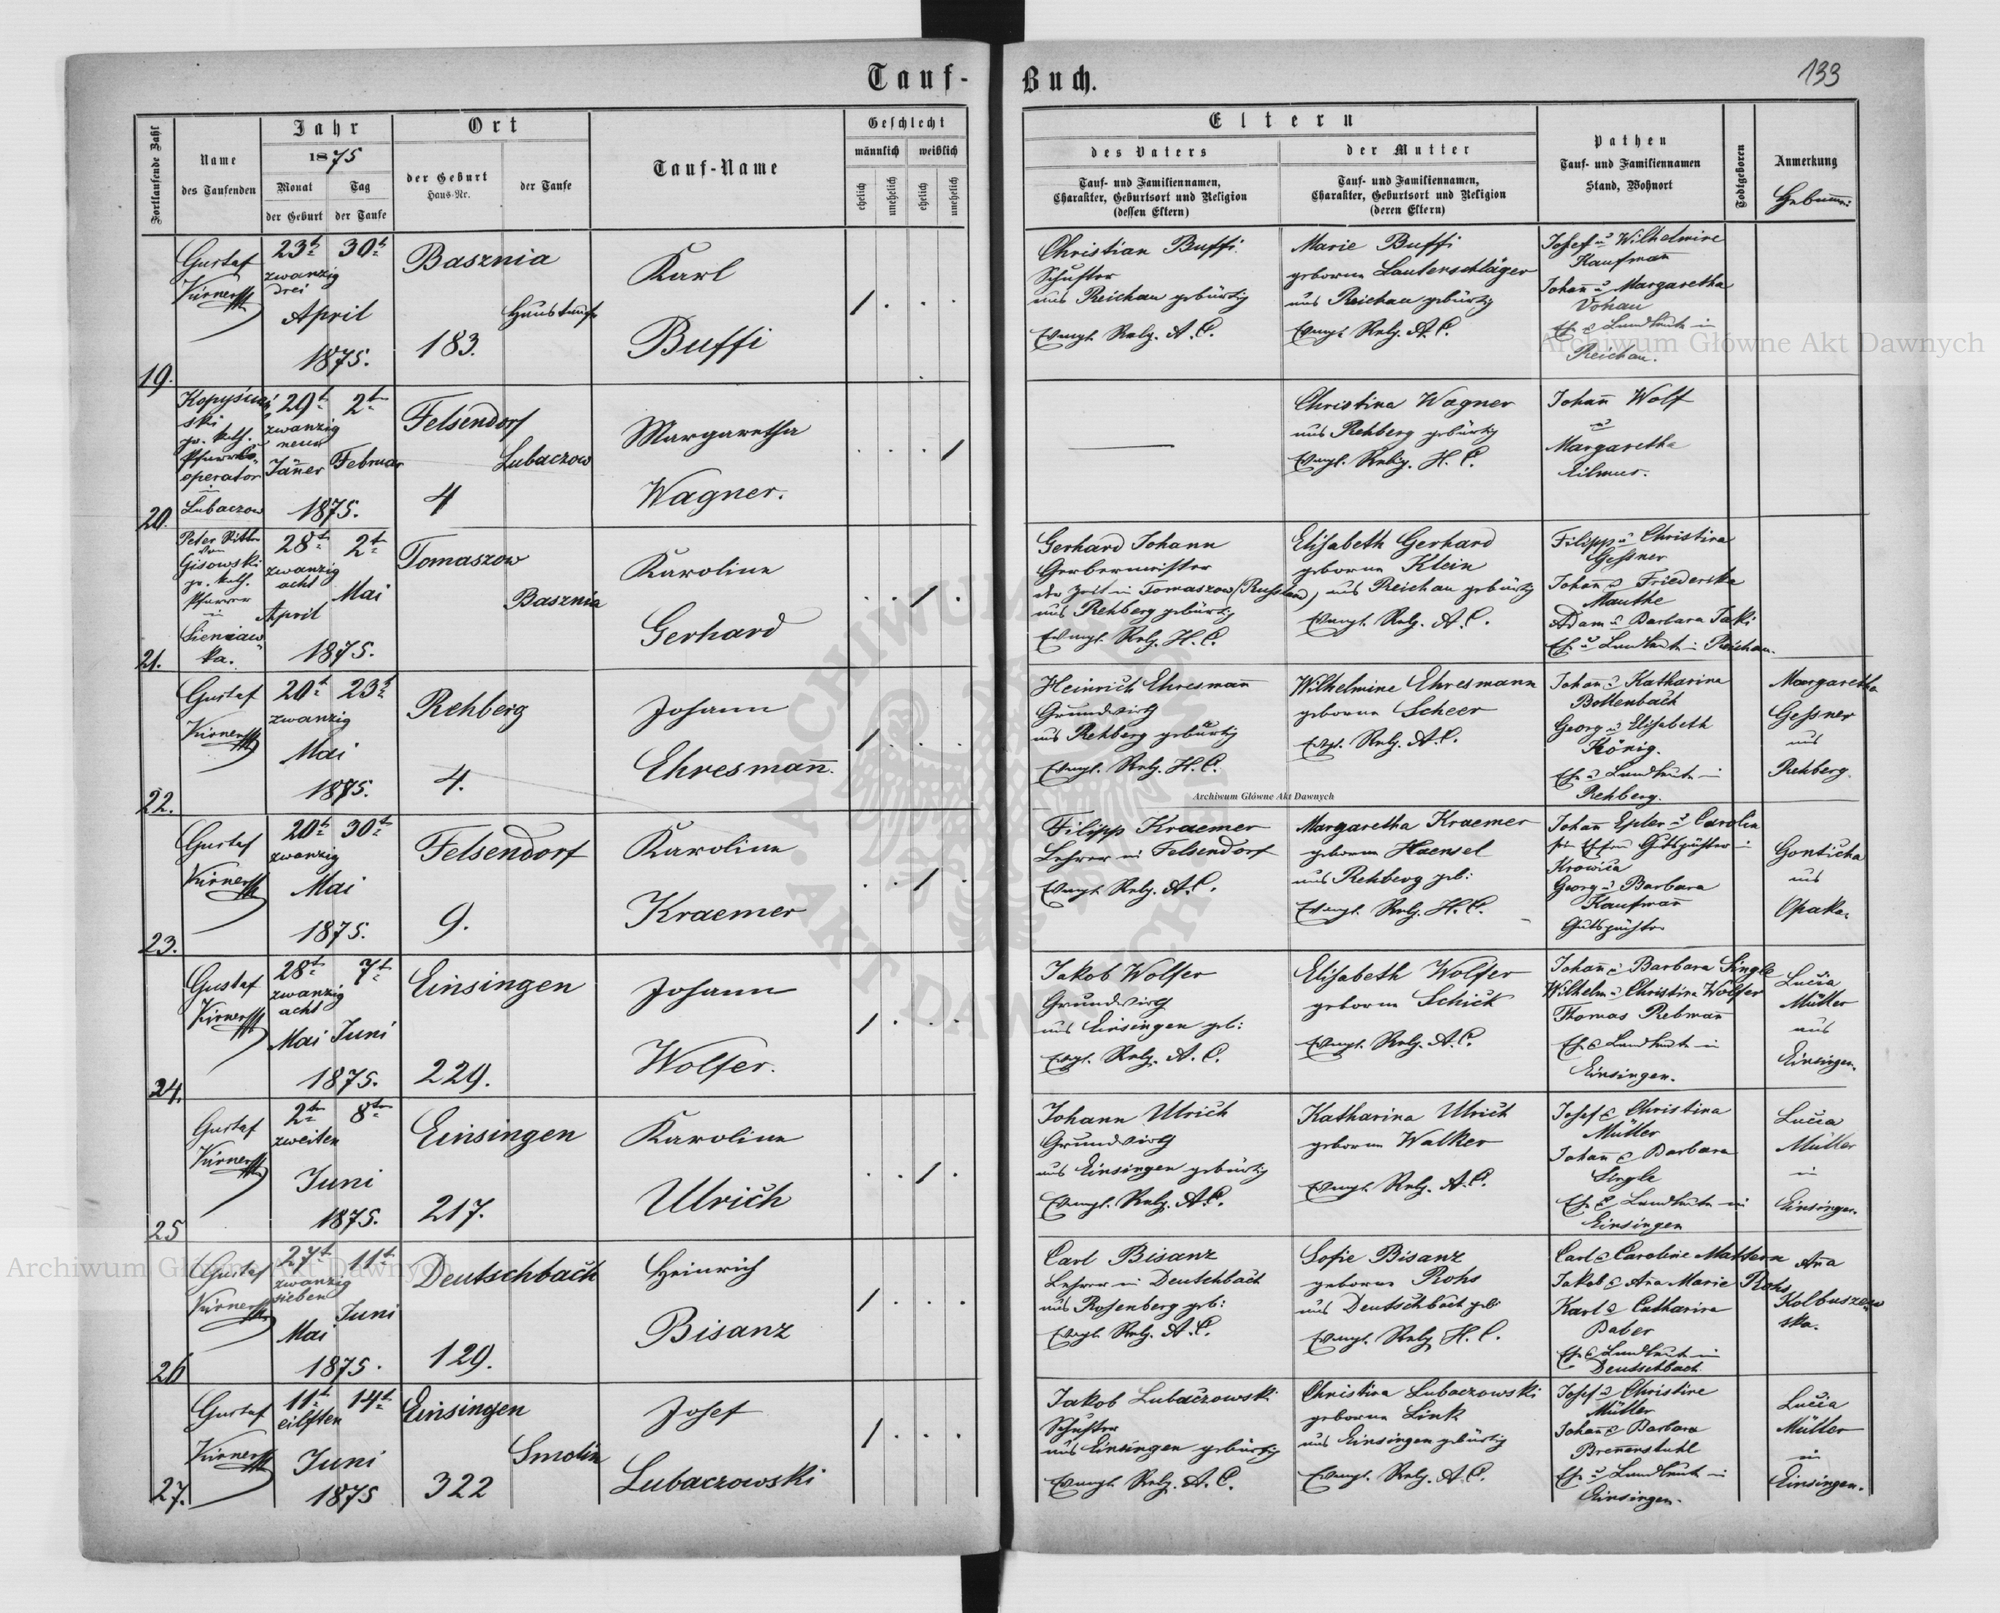 Tauf-
Buch.
133
Fortlaufende Zahl
Name
des Taufenden
Jahr
1875
Monat
der Geburt
Tag
der Taufe
Ort
der Geburt
Haus-Nr.
der Taufe
Tauf-Name
Geschlecht
männlich
weiblich
ehelich
unehelich
ehelich
unehelich
Eltern
des Vaters
Tauf- und Familiennamen,
Charakter, Geburtsort und Religion
(dessen Eltern)
der Mutter
Tauf- und Familiennamen,
Charakter, Geburtsort und Religion
(deren Eltern)
Pathen
Tauf- und Familiennamen
Stand, Wohnort
Todtgeboren
Anmerkung
19.
Gustaf
23t 30t
zwanzig
drei
April
1875.
Basznia
Haustaufe
183.
Karl
Buffi
1 . . .
Christian Buffi
Schuster
aus Reichau gebürtig
Evangl. Relg. A.C.
Marie Buffi
geborene Lautenschläger
aus Reichau gebürtig
Evangl. Relg. A.C.
Josef u Wilhelmine
Kaufman̄
Johan̄ u Margaretha
Eh. u Landleute in
Reichau.
20.
ski
gr. kath.
operator
in
Lubaczow
29t 2t
zwanzig
neun
Jänner Februar
1875.
Felsendorf
Lubaczow
4
Margaretha
Wagner.
. . . 1
—
Christina Wagner
aus Rehberg gebürtig
Evangl. Relig. H.C.
Johan̄ Wolf
u
Margaretha
21.
Peter Ritter
von
Gisowski
gr. kath.
Pfarrer
in
Sieniaw
ka.
28t 2t
zwanzig
acht
Mai
April
1875.
Tomaszow
Basznia
Karoline
Gerhard
. . 1 .
Gerhard Johann
Gerbermeister
der Zeit in Tomaszow (Russland)
aus Rehberg gebürtig
Evangl. Relg. H.C.
Elisabeth Gerhard
geborene Klein
aus Reichau gebürtig
Evangl. Relg. A.C.
Filipp u Christina
Gessner
Johan̄ u Friederika
Manthe
Adam u Barbara Jaki
Eh. u Landleute in Reichau.
22.
Gustaf
20t 23t
zwanzig
Mai
1875.
Rehberg
4.
Johann
Ehresman̄.
1 . . .
Heinrich Ehresman̄
Grundwirth
aus Rehberg gebürtig
Evangl. Relg. H.C.
Wilhelmine Ehresmann
geborene Scheer
Evgl. Relg. A.C.
Johan̄ u Katharina
Bollenbach
Georg u Elisabeth
König.
Eh. u Landleute in
Rehberg.
Margaretha
Gessner
aus
Rehberg.
23.
Gustaf
20t 30t
zwanzig
Mai
1875.
Felsendorf
9.
Karoline
Kraemer
. . 1 .
Filipp Kraemer
Lehrer in Felsendorf
Evangl. Relg. A.C.
Margaretha Kraemer
geborene Haensel
aus Rehberg geb:
Evangl. Relg. H.C.
Johan̄ Epler u Carolin
Krowica
Georg u Barbara
Kaufman̄
Gutspächter
Gonticha
aus
Opaka.
24.
Gustaf
28t 7t
zwanzig
acht
Mai Juni
1875.
Einsingen
229.
Johann
Wolfer.
1 . . .
Jakob Wolfer
Grundwirth
aus Einsingen geb:
Evgl. Relg. A.C.
Elisabeth Wolfer
geborene Schick
Evangl. Relg. A.C.
Johan̄ u Barbara Single
Wilhelm u Christina Wolfer
Thomas Rebman̄
Eh. u Landleute in
Einsingen.
Lucia
Müller
aus
Einsingen.
25
Gustaf
2ten 8ten
zweiten
Juni
1875.
Einsingen
217.
Karoline
Ulrich
. . 1 .
Johann Ulrich
Grundwirth
aus Einsingen gebürtig
Evangl. Relg. A.C.
Katharina Ulrich
geborene Walker
Evangl. Relg. A.C.
Josef u Christina
Müller
Johan̄ u Barbara
Single
Eh. u Landleute in
Einsingen
Lucia
Müller
in
Einsingen.
26
Gustaf
27t 11t
zwanzig
sieben
Juni
Mai
1875.
Deutschbach
129.
Heinrich
Bisanz
1 . . .
Carl Bisanz
Lehrer in Deutschbach
aus Rosenberg geb:
Evgl. Relg. A.C.
Sofie Bisanz
geborene Rohs
aus Deutschbach geb:
Evangl. Relg. H.C.
Carl u Caroline Mattern
Jakob u An̄a Marie Rohs
Karl u Catharina
Daber
Eh. u Landleute in
Deutschbach
An̄a
Kolbuszew
ska.
27.
Gustaf
11t 14t
eilften
Juni
1875
Einsingen
Smolin
322
Josef
Lubaczowski
1 . . .
Jakob Lubaczowski
Schuster
aus Einsingen gebürtig
Evangl. Relg. A.C.
Christina Lubaczowski
geborene Link
aus Einsingen gebürtig
Evangl. Relg. A.C.
Josef u Christine
Müller
Johan̄ u Barbara
Brenenstuhl
Eh. u Landleute in
Einsingen.
Lucia
Müller
in
Einsingen.
Archiwum Główne Akt Dawnych
Archiwum Główne Akt Dawnych
Archiwum Główne Akt Dawnych